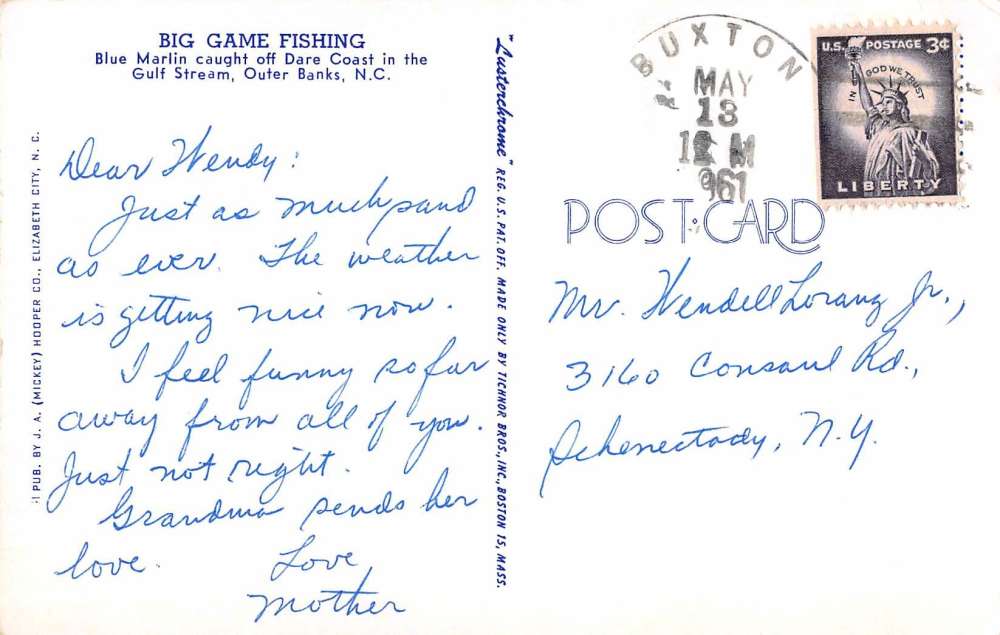 BIG GAME FISHING
Blue Marlin caught off Dare Coast in the
Gulf Stream, Outer Banks, N.C.
PUB. BY J. A. (MICKEY) HOOPER CO., ELIZABETH CITY, N. C.
Dear Wendy:
Just as much sand
as ever. The weather
is getting nice now.
I feel funny so far
away from all of you.
Just not right.
Grandma sends her
love.
Love
Mother
"Lusterchrome" REG. U.S. PAT. OFF. MADE ONLY BY TICHNOR BROS., INC., BOSTON 15, MASS.
BUXTON
MAY
13
M
1961
U.S. POSTAGE 3¢
IN GOD WE TRUST
LIBERTY
POST CARD
Mr. Wendell Lorang Jr.,
3160 Consaul Rd.,
Schenectady, N.Y.